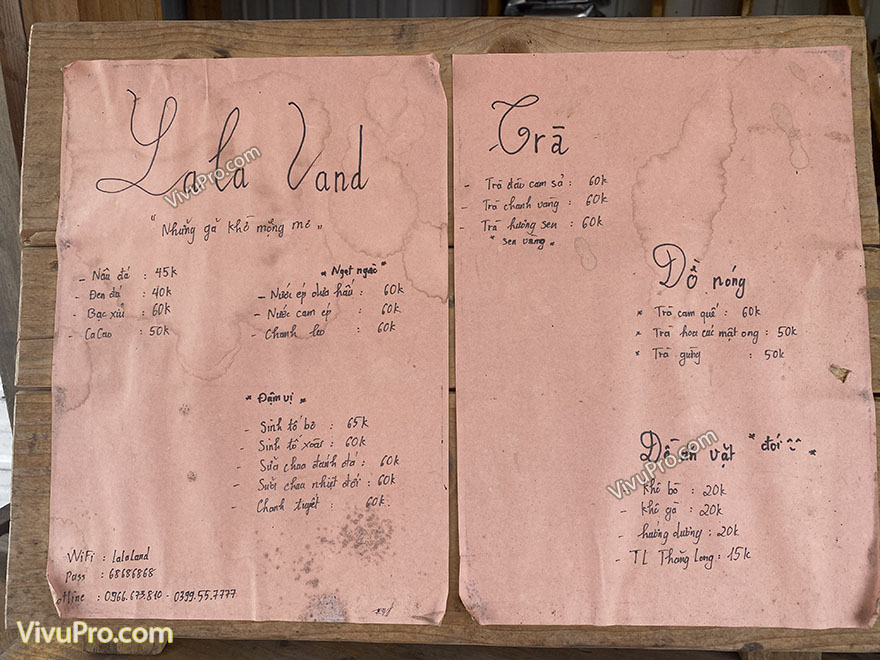 Lala Vand
" Những gã khờ mộng mơ "
- Nâu đá : 45k
- Đen đá : 40k
- Bạc xỉu : 60k
- CaCao : 50k
" Ngọt ngào "
- Nước ép dưa hấu : 60k
- Nước cam ép : 60k
- Chanh leo : 60k
" Đậm vị "
- Sinh tố bơ : 65k
- Sinh tố xoài : 60k
- Sữa chua đánh đá : 60k
- Sữa chua nhiệt đới : 60k
- Chanh tuyết : 60k
WiFi : lalaland
Pass : 68686868
Hline : 0966.673.810 - 0399.55.7777
Trà
- Trà đào cam sả : 60k
- Trà chanh vàng : 60k
- Trà hương sen : 60k
" sen vàng "
Đồ nóng
* Trà cam quế : 60k
* Trà hoa cúc mật ong : 50k
* Trà gừng : 50k
Đồ ăn vặt " đói "
- Khô bò : 20k
- Khô gà : 20k
- hướng dương : 20k
- TL Thăng Long : 15k
VivuPro.com
VivuPro.com
VivuPro.com